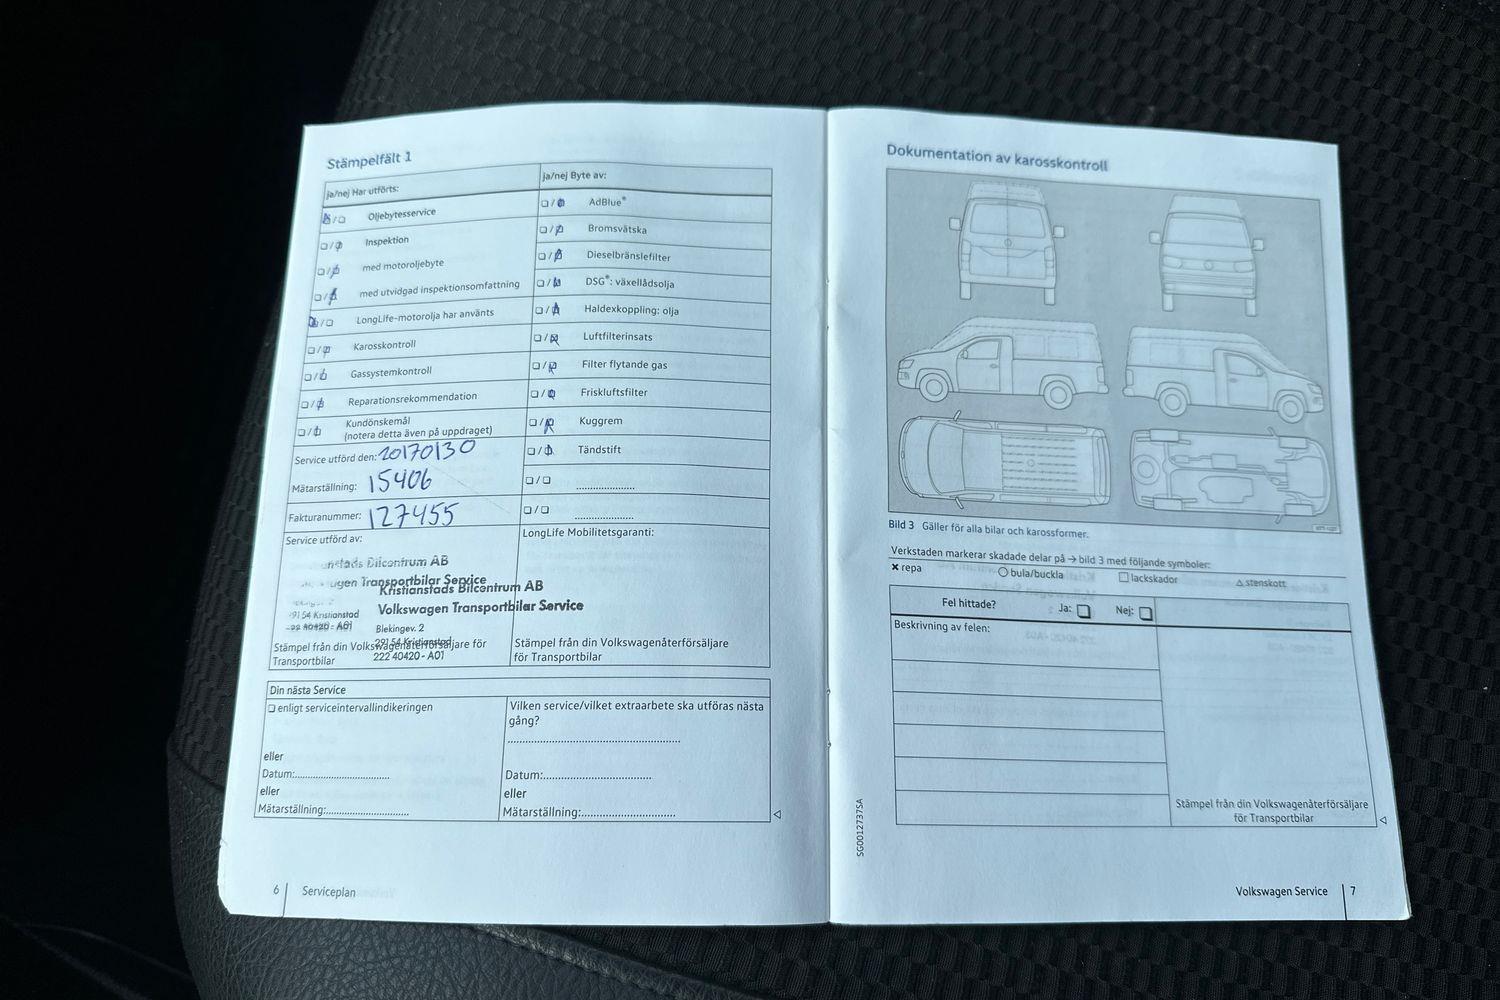 Stämpelfält 1
ja/nej Har utförts:
Oljebytesservice
Inspektion
med motoroljebyte
med utvidgad inspektionsomfattning
LongLife-motorolja har använts
Karosskontroll
Gassystemkontroll
Reparationsrekommendation
Kundönskemål
(notera detta även på uppdraget)
Service utförd den: 20170130
Mätarställning: 15406
Fakturanummer: 127455
Service utförd av:
ja/nej Byte av:
AdBlue®
Bromsvätska
Dieselbränslefilter
DSG®: växellådsolja
Haldexkoppling: olja
Luftfilterinsats
Filter flytande gas
Friskluftsfilter
Kuggrem
Tändstift
LongLife Mobilitetsgaranti:
Bilcentrum AB
Transportbilar Service
291 54 Kristianstad
40420 - A01
Kristianstads Bilcentrum AB
Volkswagen Transportbilar Service
Blekingev. 2
291 54 Kristianstad
222 40420 - A01
Stämpel från din Volkswagenåterförsäljare för
Transportbilar
Stämpel från din Volkswagenåterförsäljare
för Transportbilar
Din nästa Service
enligt serviceintervallindikeringen
eller
Datum:
eller
Mätarställning:
Vilken service/vilket extraarbete ska utföras nästa
gång?
Datum:
eller
Mätarställning:
6 Serviceplan
Dokumentation av karosskontroll
Bild 3 Gäller för alla bilar och karossformer.
Verkstaden markerar skadade delar på → bild 3 med följande symboler:
× repa ○ bula/buckla □ lackskador △ stenskott
Fel hittade? Ja: □ Nej: □
Beskrivning av felen:
Stämpel från din Volkswagenåterförsäljare
för Transportbilar
SG0012737SA
Volkswagen Service 7